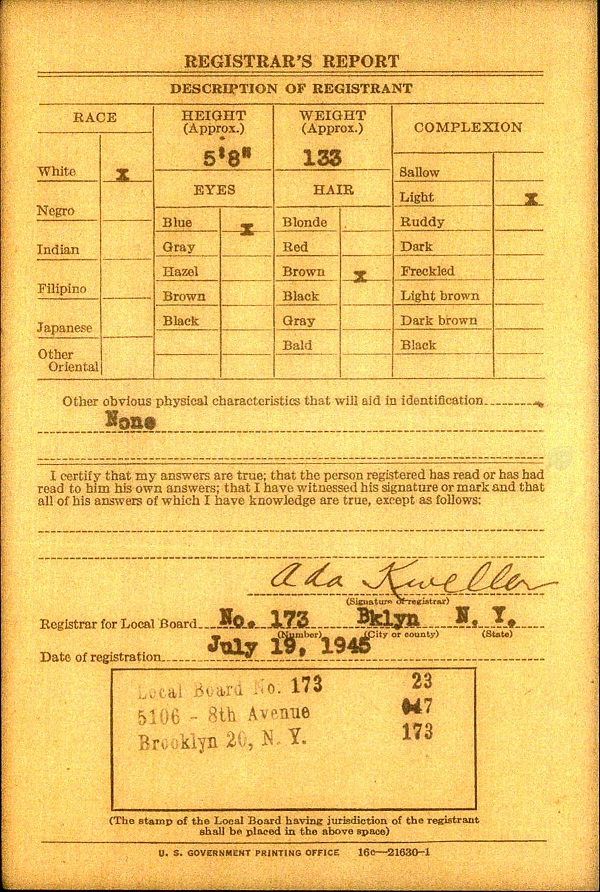 REGISTRAR'S REPORT
DESCRIPTION OF REGISTRANT
RACE
HEIGHT
(Approx.)
WEIGHT
(Approx.)
COMPLEXION
5'8" 133
White x
Sallow
EYES HAIR
Light x
Negro
Blue x Blonde Ruddy
Indian
Gray Red Dark
Filipino
Hazel Brown x Freckled
Brown Black Light brown
Japanese
Black Gray Dark brown
Other
Oriental
Bald Black
Other obvious physical characteristics that will aid in identification
None
I certify that my answers are true; that the person registered has read or has had
read to him his own answers; that I have witnessed his signature or mark and that
all of his answers of which I have knowledge are true, except as follows:
Ada Kweller
(Signature of registrar)
Registrar for Local Board No. 173 Bklyn N. Y.
(Number) (City or county) (State)
Date of registration July 19, 1945
Local Board No. 173 23
5106 - 8th Avenue 047
Brooklyn 20, N. Y. 173
(The stamp of the Local Board having jurisdiction of the registrant
shall be placed in the above space)
U. S. GOVERNMENT PRINTING OFFICE 16c—21630-1